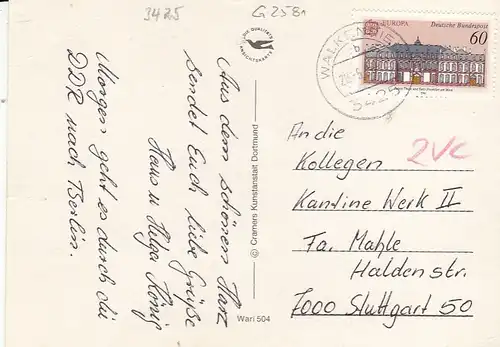 3425
G 2581
Aus dem schönen Harz
sendet Euch liebe Grüße
Haus u Helga König
Morgen geht es durch die
DDR nach Berlin.
DIE QUALITÄTS
ANSICHTSKARTE
© Cramers Kunstanstalt Dortmund
Wari 504
EUROPA Deutsche Bundespost
60
WALKENRIED
b
3425
2VC
An die
Kollegen
Kantine Werk II
Fa. Mahle
Haldenstr.
7000 Stuttgart 50